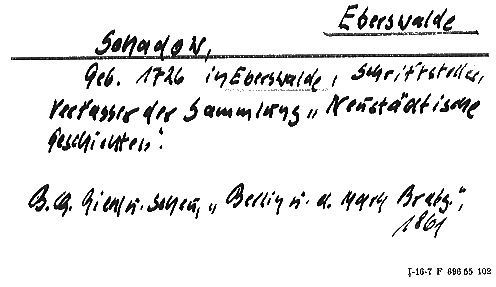 Eberswalde
Schadow,
Geb. 1726 in Eberswalde, Schriftsteller,
Verfasser der Sammlung „Neustädtische
Geschichten".
"Berlin u. d. Mark Brdbg.",
1861
I-16-7 F 696 55 102